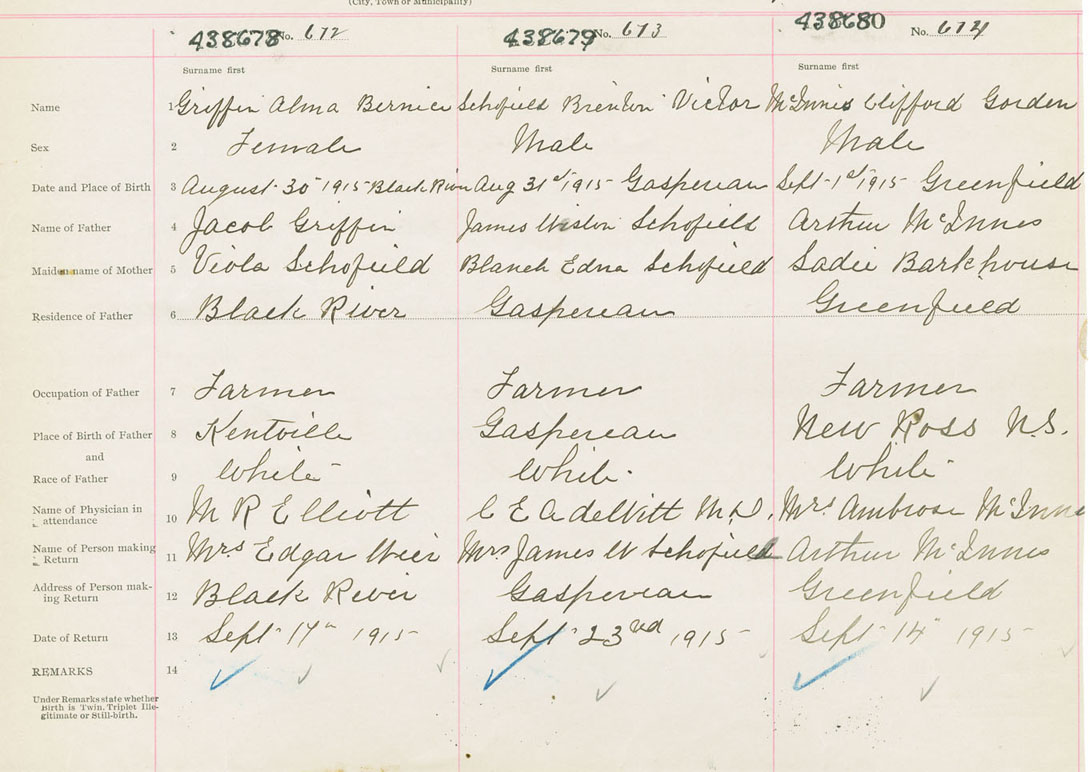 (City, Town or Municipality)
438678 No. 672 438679 No. 673 438680 No. 674
Surname first Surname first Surname first
Name 1 Griffin Alma Bernice Schofield Brenton Victor McInnis Clifford Gorden
Sex 2 Female Male Male
Date and Place of Birth 3 August 30th 1915 Black River Aug 31st 1915 Gaspereau Sept 1st 1915 Greenfield
Name of Father 4 Jacob Griffin James Wiston Schofield Arthur McInnes
Maiden name of Mother 5 Viola Schofield Blanch Edna Schofield Sadie Barkhouse
Residence of Father 6 Black River Gaspereau Greenfield
Occupation of Father 7 Farmer Farmer Farmer
Place of Birth of Father 8 Kentville Gaspereau New Ross N.S.
and
Race of Father 9 White White White
Name of Physician in
attendance 10 M R Elliott C E A deWitt M.D. Mrs Ambrose McInnis
Name of Person making
Return 11 Mrs Edgar Weir Mrs James W Schofield Arthur McInnes
Address of Person mak-
ing Return 12 Black River Gaspereau Greenfield
Date of Return 13 Sept 17th 1915 Sept 23rd 1915 Sept 14th 1915
REMARKS 14
Under Remarks state whether
Birth is Twin, Triplet Ille-
gitimate or Still-birth.